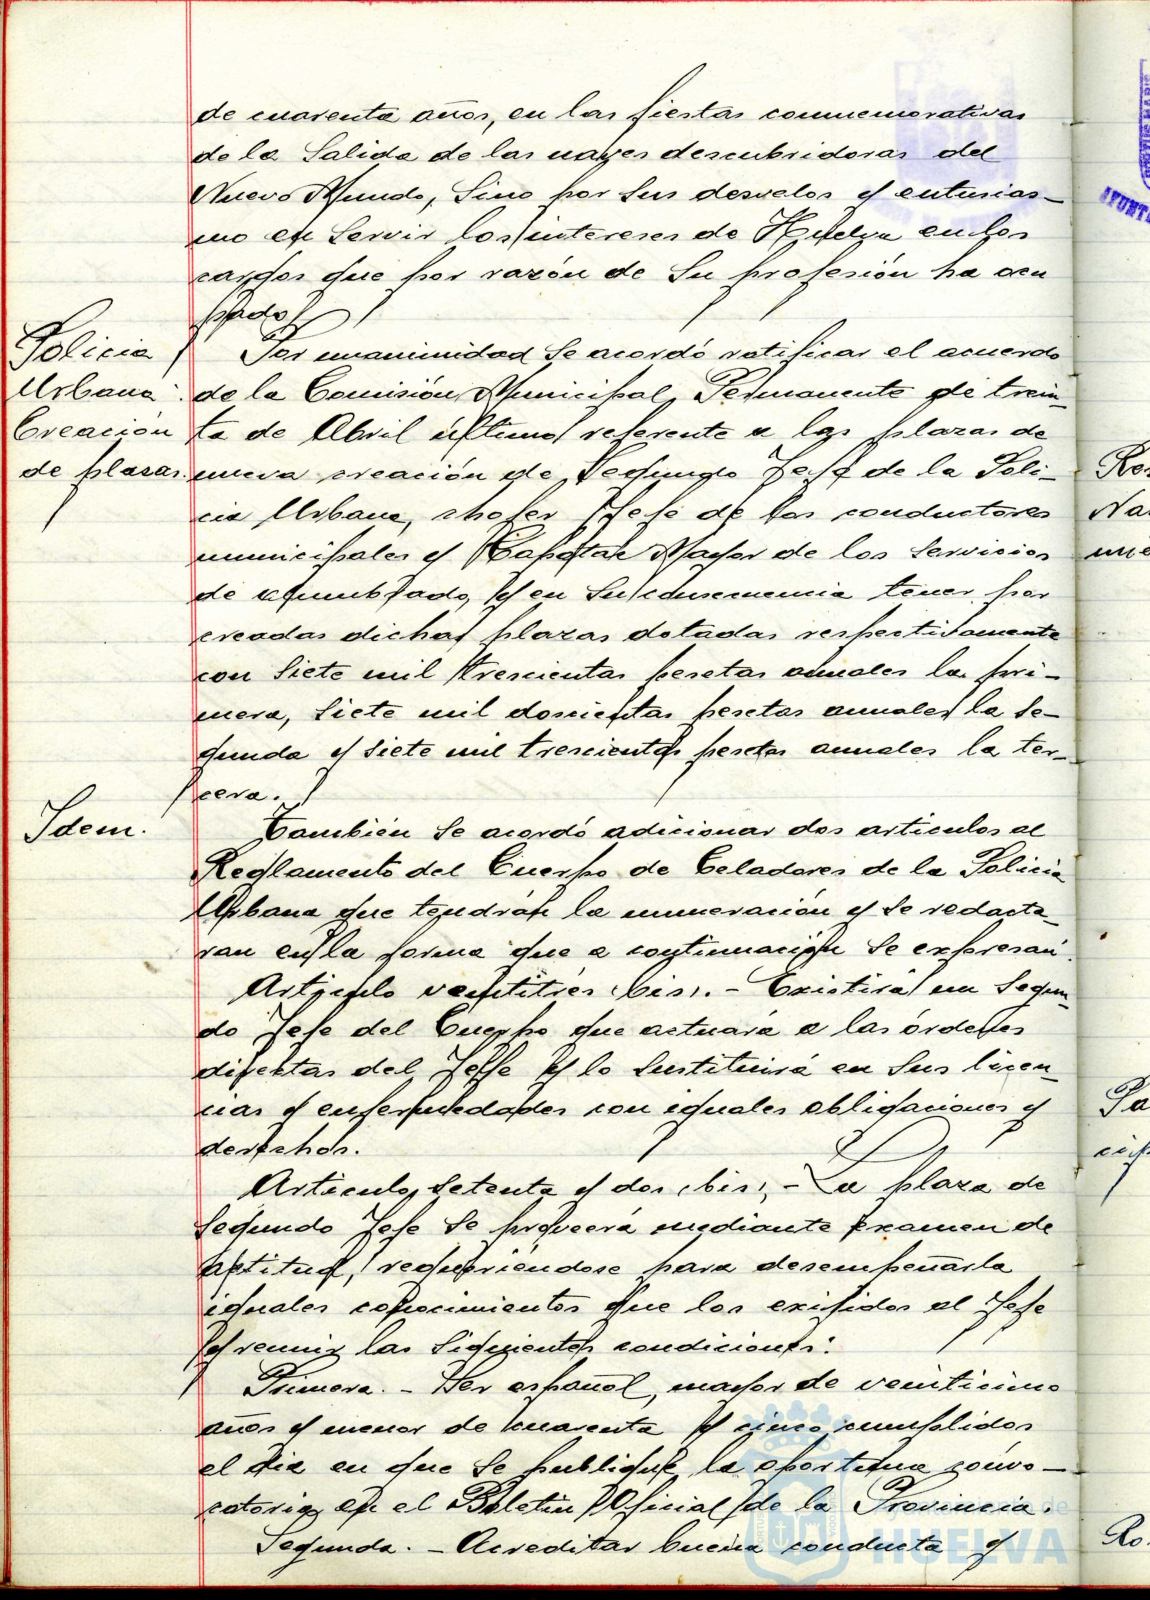 de cuarenta años, en las fiestas conmemorativas
de la Salida de las naves descubridoras del
Nuevo Mundo, Sino por sus desvelos y entusias-
mo en Servir los intereses de Huelva en los
cargos que por razón de Su profesión ha ocu
pado.
Policia
Urbana.
Creación
de plazas.
Por unanimidad Se acordó ratificar el acuerdo
de la Comisión Municipal Permanente de trein-
ta de Abril último referente a las plazas de
nueva creación de Segundo Jefe de la Poli-
cia Urbana, chofer Jefe de los conductores
municipales y Capataz Mayor de los Servicios
de alumbrado, y en Su consecuencia tener por
creadas dichas plazas dotadas respectivamente
con Siete mil trescientas pesetas anuales la pri-
mera, Siete mil doscientas pesetas anuales la Se-
gunda y Siete mil trescientas pesetas anuales la ter-
cera.
Idem.
También Se acordó adicionar dos articulos al
Reglamento del Cuerpo de Celadores de la Policia
Urbana que tendrán la numeración y Se redacta-
ran en la forma que a continuación Se expresan.
Articulo veintitrés (bis).- Existirá un Segun-
do Jefe del Cuerpo que actuará a las órdenes
directas del Jefe y lo Sustituirá en Sus licen-
cias y enfermedades con iguales obligaciones y
derechos.
Articulo Setenta y dos (bis).- La plaza de
Segundo Jefe Se proveerá mediante examen de
aptitud, requiriéndose para desempeñarla
iguales conocimientos que los exigidos al Jefe
y reunir las Siguientes condiciones:
Primera.- Ser español, mayor de veinticinco
años y menor de cuarenta y cinco cumplidos
el dia en que Se publique la oportuna convo-
catoria en el Boletin Oficial de la Provincia.
Segunda.- Acreditar buena conducta y
HUELVA